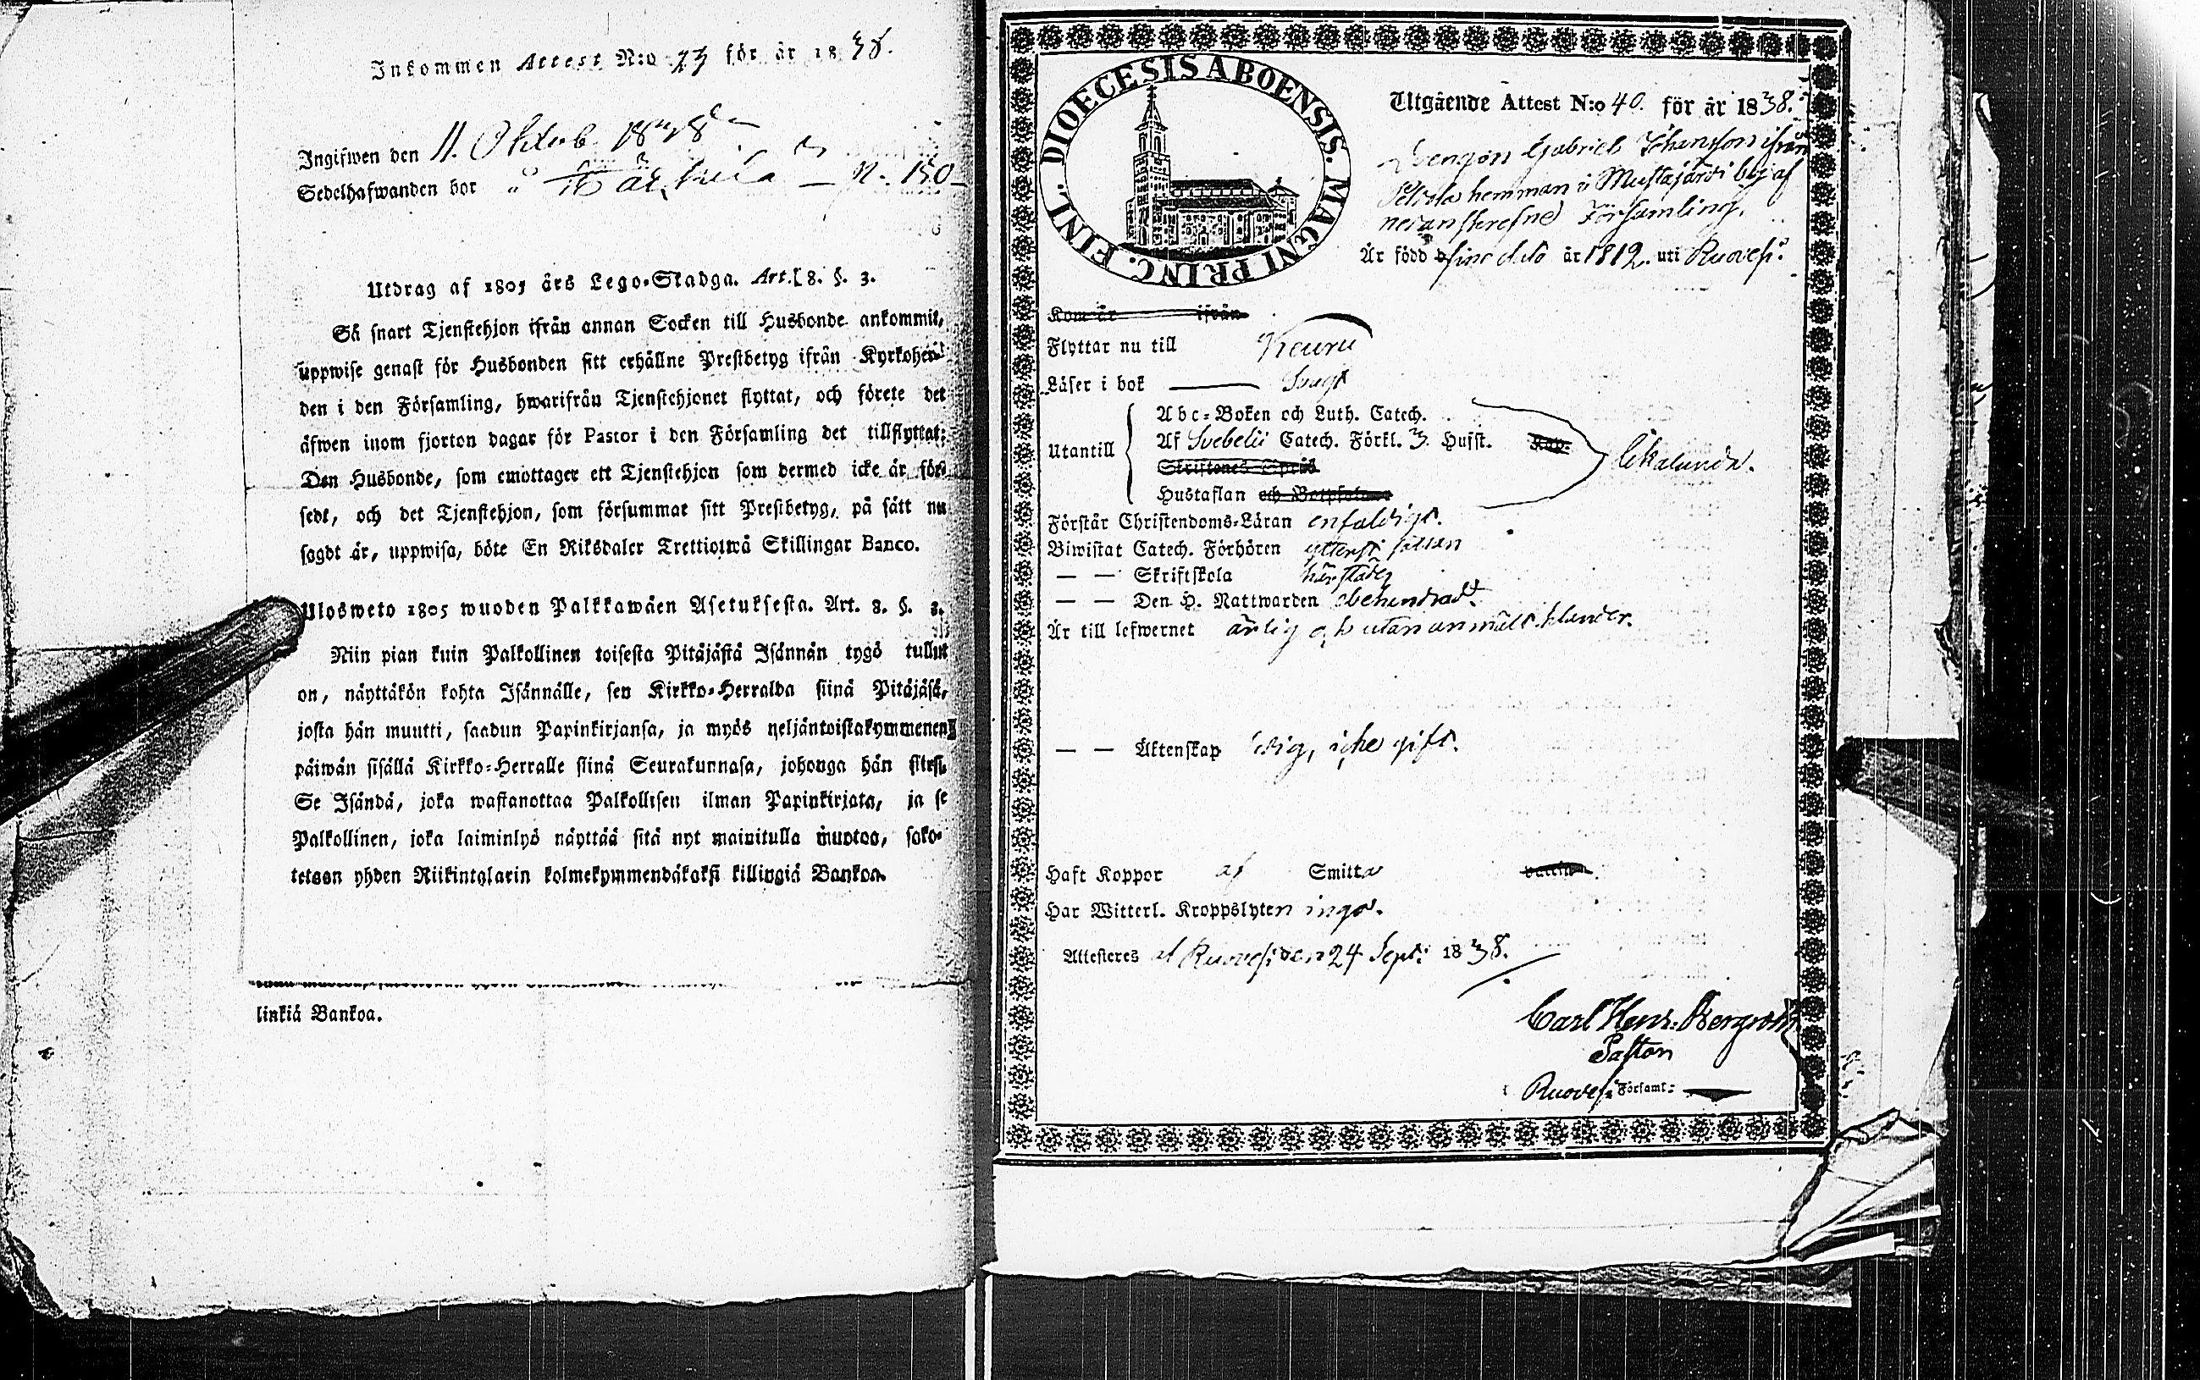 Inkommen Attest N:o 73 för år 1838.
Ingifwen den 11. Oktob. 1838
Sedelhafwanden bor å N. 150
Utdrag af 1805 års Lego-Stadga. Art. 8. §. 3.
Så snart Tjenstehjon ifrån annan Socken till Husbonde ankommit,
uppwise genast för Husbonden sitt erhållne Prestbetyg ifrån Kyrkoher-
den i den Församling, hwarifrån Tjenstehjonet flyttat, och förete det
äfwen inom fjorton dagar för Pastor i den Församling det tillflyttat;
Den Husbonde, som emottager ett Tjenstehjon som dermed icke är för-
sedt, och det Tjenstehjon, som försummar sitt Prestbetyg, på sätt nu
sagdt är, uppwisa, böte En Riksdaler Trettiotwå Skillingar Banco.
Ulosweto 1805 wuoden Palkkawäen Asetuksesta. Art. 8. §. 3.
Niin pian kuin Palkollinen toisesta Pitäjästä Isännän tygö tullut
on, näyttäkön kohta Isännälle, sen Kirkko-Herralda siinä Pitäjäsä,
josta hän muutti, saadun Papinkirjansa, ja myös neljäntoistakymmenen
päiwän sisällä Kirkko-Herralle siinä Seurakunnasa, johonga hän siirsi.
Se Isändä, joka wastanottaa Palkollisen ilman Papinkirjata, ja se
Palkollinen, joka laiminlyö näyttää sitä nyt mainitulla muotoo, sako-
tetaan yhden Riikintalarin kolmekymmendäkaksi killingiä Bankoa.
linkiä Bankoa.
DIOECESIS ABOENSIS. MAGNI PRINC. FINL.
Utgående Attest N:o 40. för år 1838.
Drengen Gabriel Johansson ifrån
hemman i Mustajärvi by af
nedanskrefne Församling.
Är född sine dato år 1812. uti Ruovesi.
Kom år ifrån
Flyttar nu till Keuru
Läser i bok Svagt
Abc-Boken och Luth. Catech.
Utantill Af Svebelii Catech. Förkl. 3. Husst. Kap.
Skriftenes Språk
Hustaflan och Botpsalmer
Förstår Christendoms-Läran enfaldigt.
Biwistat Catech. Förhören ytterst sällan
— — Skriftskola härstädes
— — Den H. Nattwarden obehindrad.
Är till lefwernet ärlig och utan anmält klander.
— — Äktenskap ledig, icke gift.
Haft Koppor af Smitta vaccin.
Har Witterl. Kroppslyten inga.
Attesteres af Ruovesi den 24 Sept: 1838.
Carl Henr. Bergroth
Pastor
Ruovesi Församl: